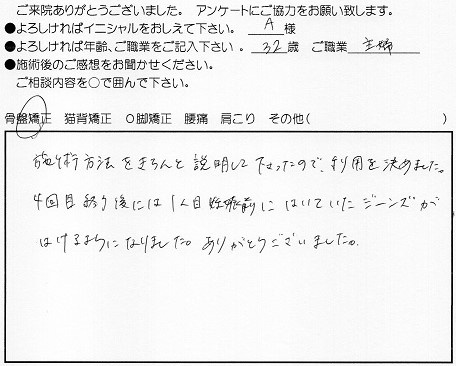 ご来院ありがとうございました。 アンケートにご協力をお願い致します。
●よろしければイニシャルをおしえて下さい。 A 様
●よろしければ年齢、ご職業をご記入下さい 。 32 歳 ご職業 主婦
●施術後のご感想をお聞かせください。
ご相談内容を○で囲んで下さい。
骨盤矯正 猫背矯正 O脚矯正 腰痛 肩こり その他( )
施術方法をきちんと説明して下さったので、利用を決めました。
4回目終了後には1人目妊娠前にはいていたジーンズが
はけるようになりました。ありがとうございました。